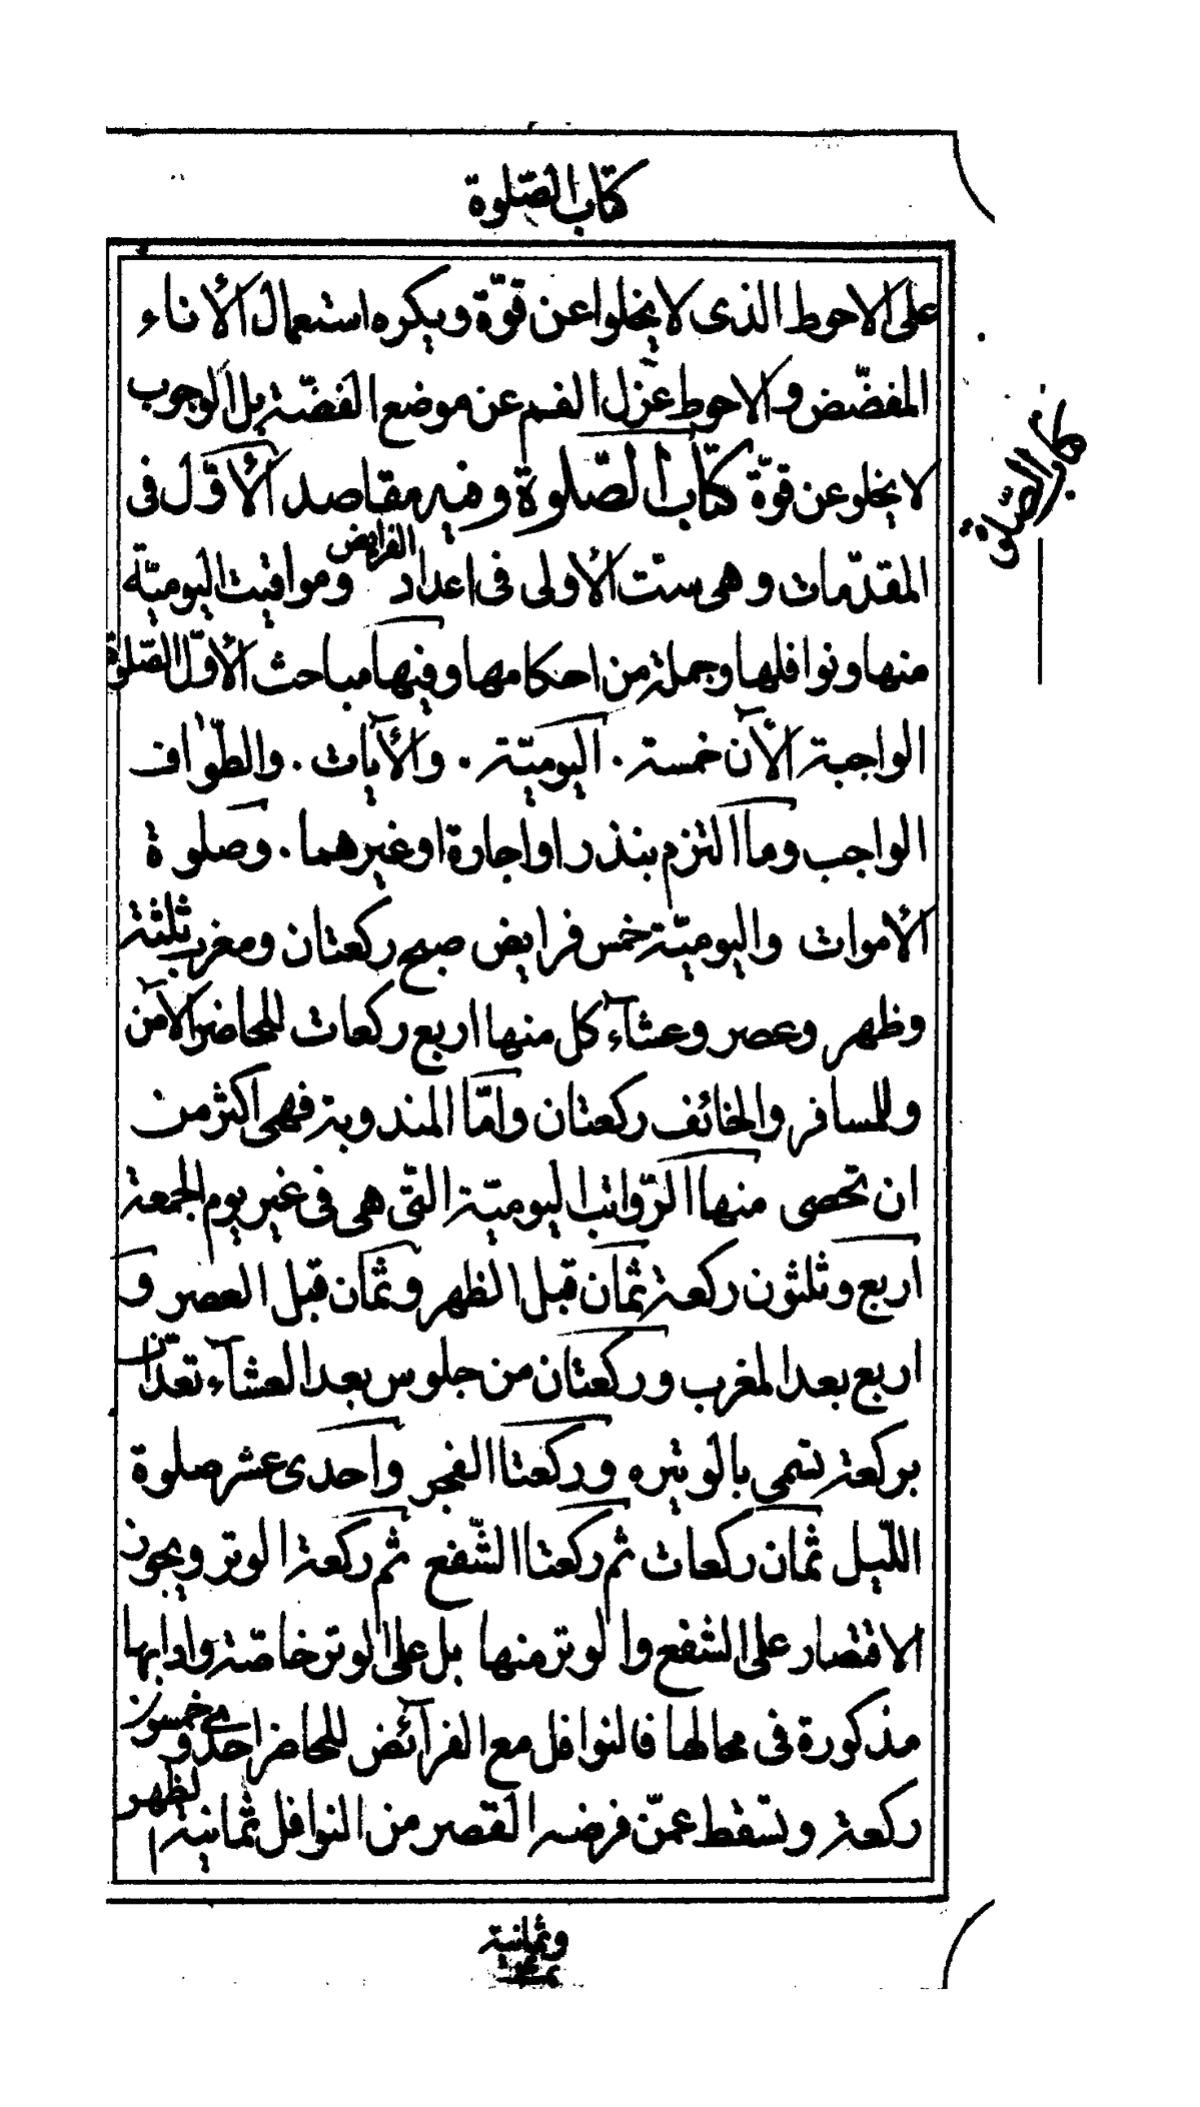 كتاب الصّلوة
على الاحوط الذى لا يخلوا عن قوّة ويكره استعمال الأناء
المفضّض والاحوط عزل الفم عن موضع الفضّة بل الوجوب
لا يخلو عن قوّة كتاب الصّلوة وفيه مقاصد الأوّل فى
كتاب الصّلوة
المقدّمات وهى ستّ الأولى فى اعداد الفرايض ومواقيت اليوميّة
منها ونوافلها وجملة من احكامها وفيها مباحث الأوّل الصّلوة
الواجبة الآن خمسة . اليوميّة . والأيات . والطّواف
الواجب وما التزم بنذر او اجارة او غيرهما . وصلوة
الأموات واليوميّة خمس فرايض صبح ركعتان ومغرب ثلثة
وظهر وعصر وعشآء كل منها اربع ركعات للحاضر الآمن
وللمسافر والخائف ركعتان وامّا المندوبة فهى اكثر من
ان تحصى منها الرّواتب اليوميّة التّى هى فى غير يوم الجمعة
اربع وثلثون ركعة ثمان قبل الظهر وثمان قبل العصر و
اربع بعد المغرب وركعتان من جلوس بعد العشآء تعدّان
بركعة تسمى بالوتيره وركعتا الفجر واحدى عشر صلوة
اللّيل ثمان ركعات ثم ركعتا الشّفع ثم ركعة الوتر ويجوز
الاقتصار على الشفع والوتر منها بل على الوتر خاصّة وادابها
مذكورة فى محالها فالنوافل مع الفرآئض للحاضر احدى وخمسون
ركعة وتسقط عمّن فرضه القصر من النوافل ثمانية الظهر
وثمانية